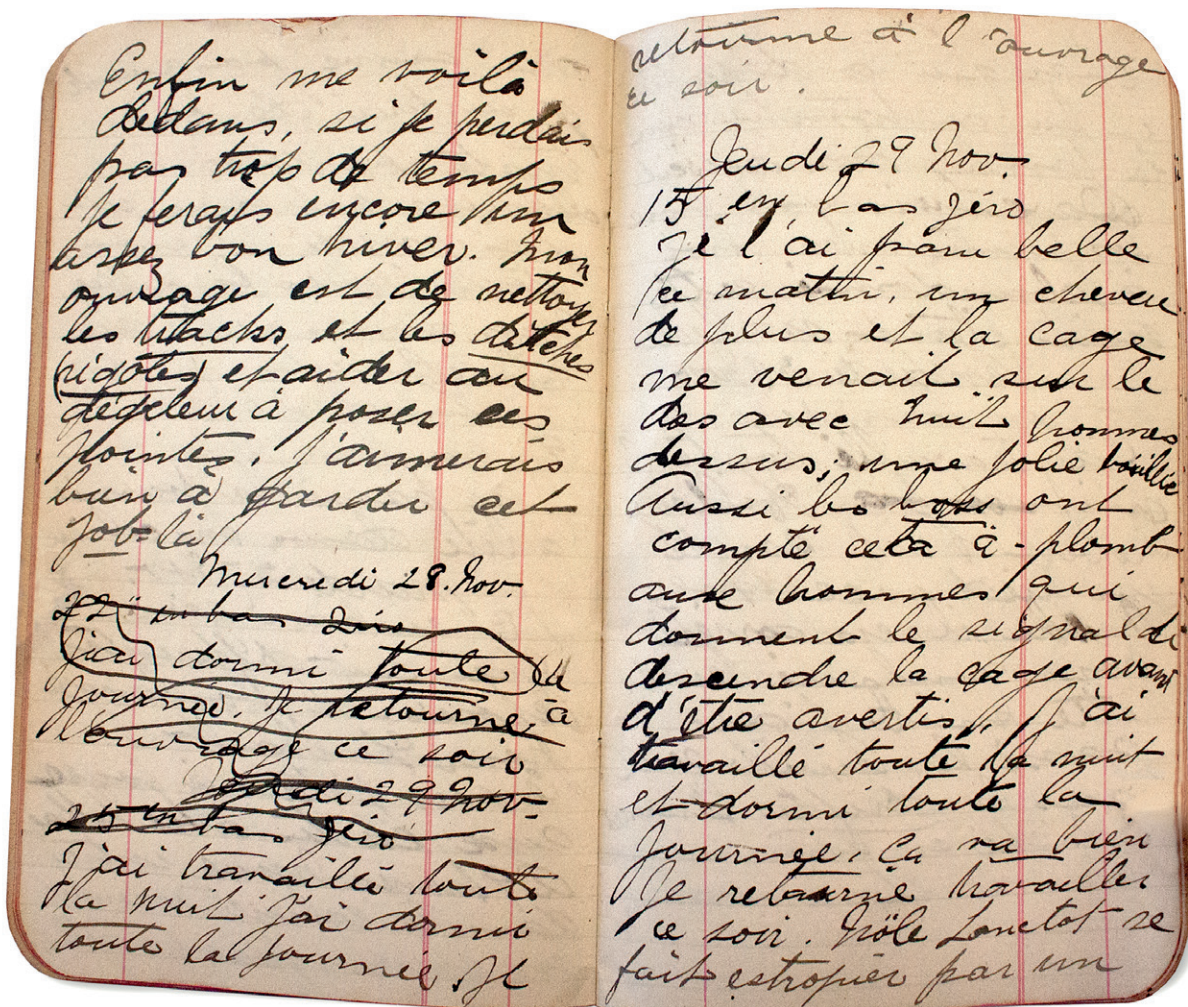 Enfin me voilà
dedans, si je perdais
pas trop de temps
je ferais encore un
assez bon hiver. Mon
ouvrage est de nettoyer
les tracks et les ditches
(rigoles) et aider au
à poser ces
pointes. J'aimerais
bien à garder cet
job-là
Mercredi 28. Nov.
22 en bas zéro
J'ai dormi toute la
journée. Je retourne à
l'ouvrage ce soir
Jeudi 29 Nov.
25 en bas zéro
J'ai travaillé toute
la nuit j'ai dormi
toute la journée. Je
retourne à l'ouvrage
ce soir.
Jeudi 29 Nov.
15 en bas zéro
Je l'ai paru belle
ce matin, un cheveu
de plus et la cage
me venait sur le
dos avec huit hommes
dessus, une jolie bouillie
Aussi les boss ont
compté cela à-plomb
aux hommes qui
donnent le signal de
descendre la cage avant
d'être avertis, J'ai
travaillé toute la nuit
et dormi toute la
journée. Ca va bien
Je retourne travailler
ce soir. Lanctot se
fait estropier par un